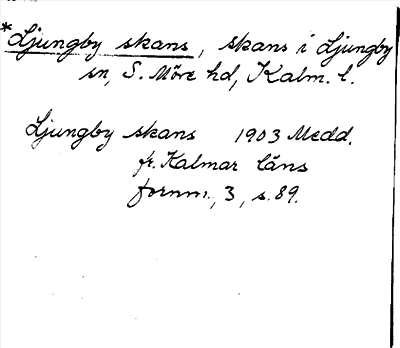 *Ljungby skans, skans i Ljungby
sn, S. Möre hd, Kalm. l.
Ljungby skans 1903 Medd.
fr. Kalmar läns
fornm., 3, s. 89.